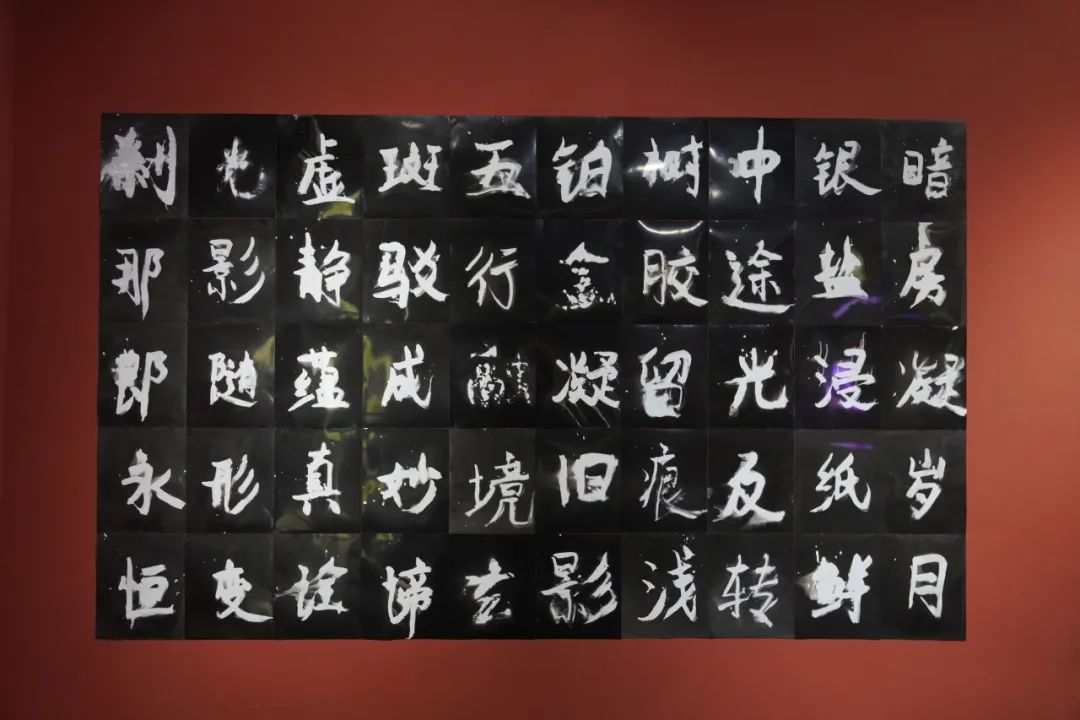 暗房凝岁月
银盐浸纸鲜
冲途光反转
树胶留痕浅
铂金凝旧影
五行融境玄
斑驳成妙谛
虚静蕴真诠
光影随形变
刹那即永恒